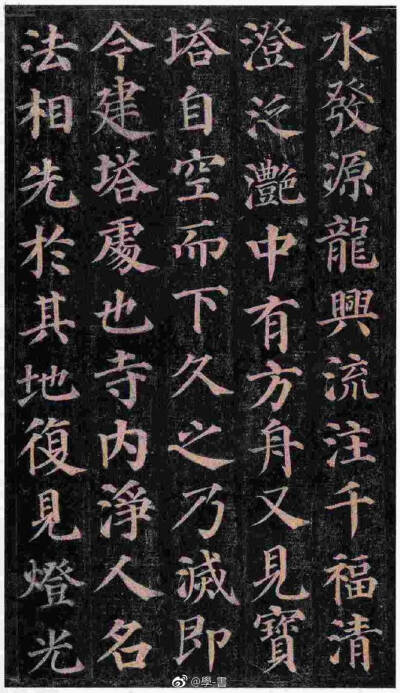 水發源龍興流注千福清
澄泛灔中有方舟又見寶
塔自空而下久之乃滅即
今建塔處也寺內淨人名
法相先於其地復見燈光
@學-書